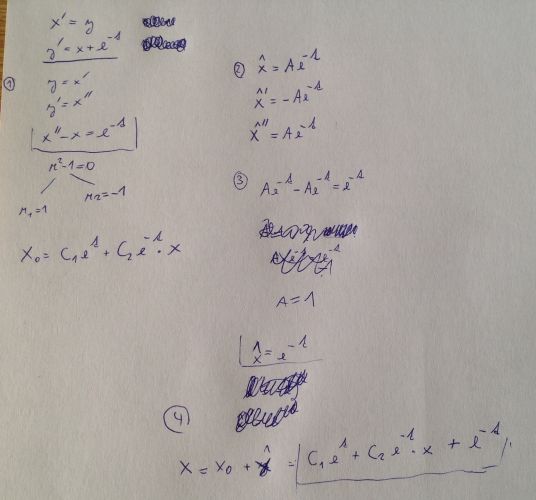 x' = y
y' = x + e^-t
①
y = x'
y' = x''
x'' - x = e^-t
r²-1=0
r₁=1 r₂=-1
x₀ = C₁e^t + C₂e^-t · x
② x̂ = Ae^-t
x̂' = -Ae^-t
x̂'' = Ae^-t
③ Ae^-t - Ae^-t = e^-t
A=1
x̂ = e^-t
④
x = x₀ + x̂ = C₁e^t + C₂e^-t · x + e^-t